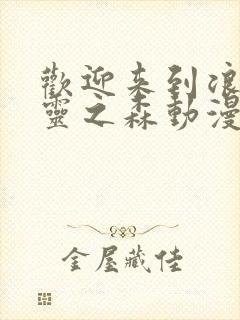 歡迎來到浪
靈之森動漫
金屋藏佳